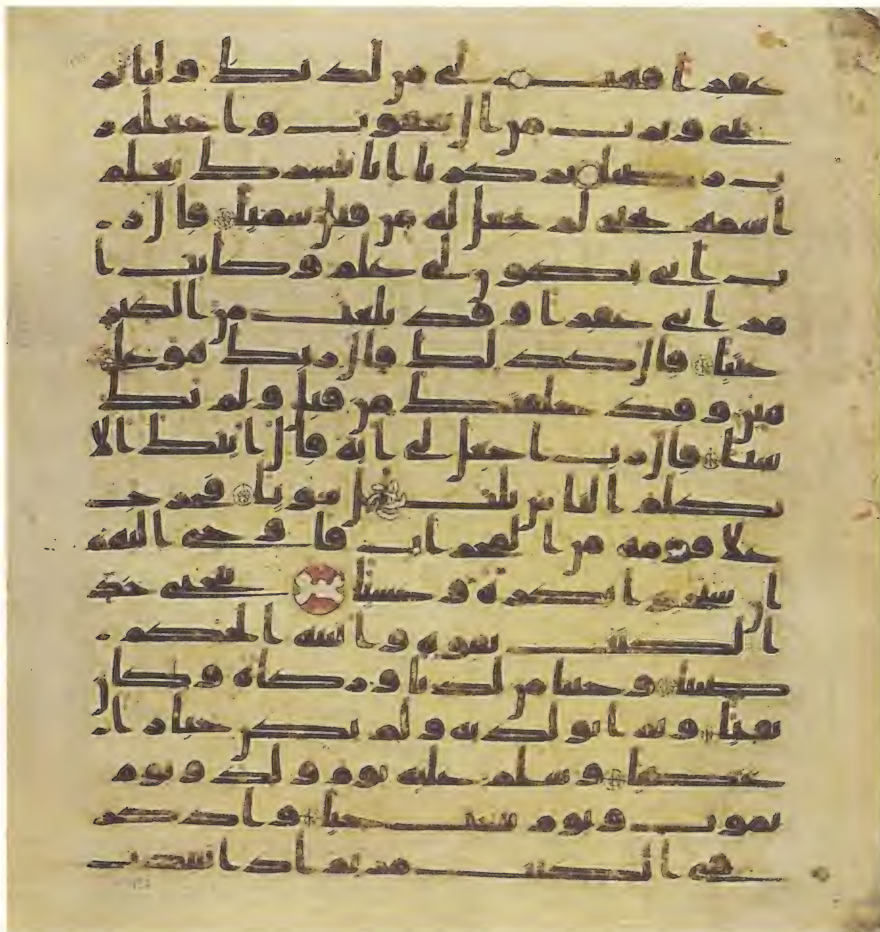 عقرا فهب لي من لدنك وليا ير
ثني ويرث من ال يعقوب واجعله ر
ب رضيا يزكريا انا نبشرك بغلم
اسمه يحيى لم نجعل له من قبل سميا قال ر
ب انى يكون لي غلم وكانت ا
مراتي عقرا وقد بلغت من الكبر
عتيا قال كذلك قال ربك هو علي
هين وقد خلقتك من قبل ولم تك
شيا قال رب اجعل لي اية قال ايتك الا
تكلم الناس ثلث ليل سويا فخرج
علا قومه من المحراب فاوحى اليهم
ان سبحوا بكرة وعشيا ييحيى خذ
الكتب بقوة واتينه الحكم
صبيا وحنانا من لدنا وزكاة وكان
تقيا وبرا بولديه ولم يكن جبارا
عصيا وسلم عليه يوم ولد ويوم
يموت ويوم يبعث حيا واذكر
في الكتب مريم اذ انتبذت